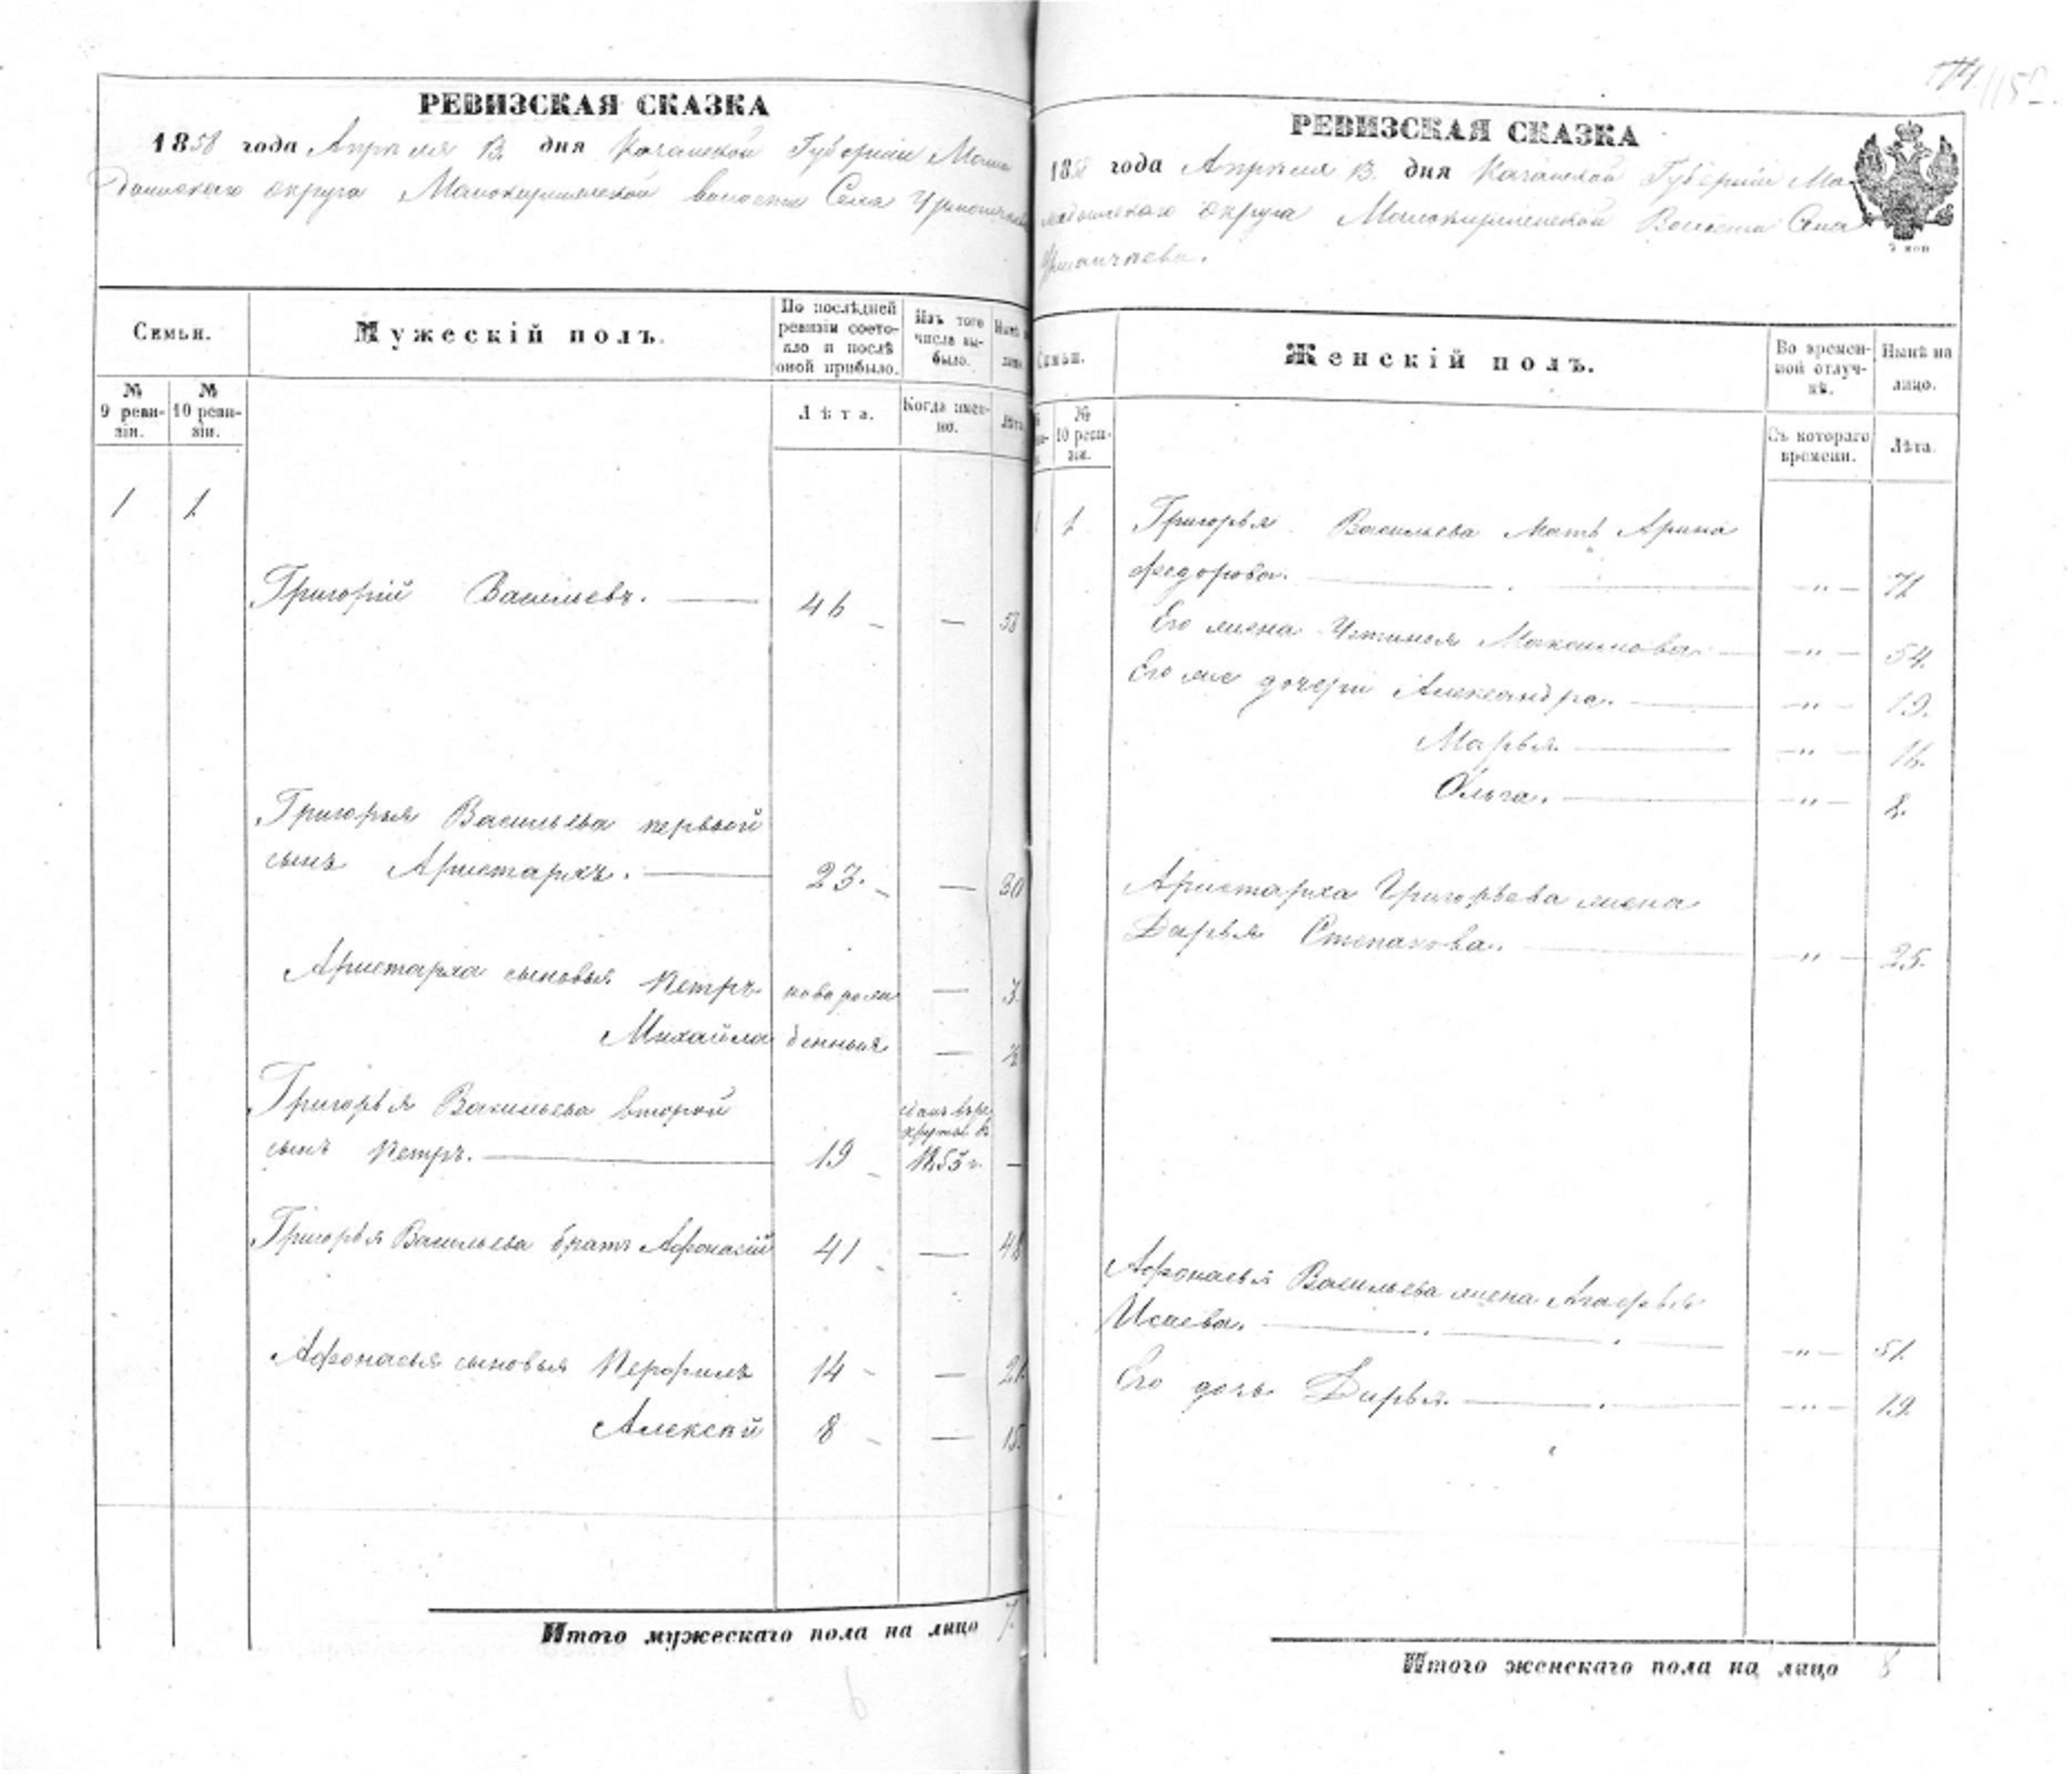 РЕВИЗСКАЯ СКАЗКА
1858 года Апреля 13. дня Казанской Губернии Мама
дышского округа Малокирменской волости Села
Семьи.
Мужескій полъ.
По послѣдней ревизіи состояло и послѣ оной прибыло.
Изъ того числа выбыло.
№ 9 ревизіи.
№ 10 ревизіи.
Лѣта.
Когда именно.
Лѣта
1 1
Григорій Васильевъ. — 46 — 53
Григорья Васильева первый
сынъ Аристархъ. — 23. — 30
Аристарха сыновья Петръ новорож — 3.
Михайла денные —
Григорья Васильева второй
сданъ въ ре
круты в
сынъ Петръ. — 19 1853 г. —
Григорья Васильева братъ Афонасій 41 — 48
Афонасья сыновья Перфилъ 14 — 21.
Алексѣй 8 — 15.
Итого мужескаго пола на лицо 7.
6
РЕВИЗСКАЯ СКАЗКА
1858 года Апреля 13. дня Казанской Губерніи Ма-
мадышскаго округа Малокирменской Волости Села
Женскій полъ.
Во временной отлучкѣ.
Нынѣ на лицо.
№ 10 ревизіи.
Съ котораго времени.
Лѣта.
1 Григорья Васильева мать Арина
Федорова. — " — 71
Его жена Устинья Максимова. — " — 54.
Его же дочери Александра. — " — 19.
Марья. — " — 16.
Ольга. — " — 8.
Аристарха Григорьева жена
Дарья Степанова. — " — 25.
Афонасья Васильева жена Агафья
Исаева. — " — 51.
Его дочь Дарья. — " — 19.
Итого женскаго пола на лицо 8